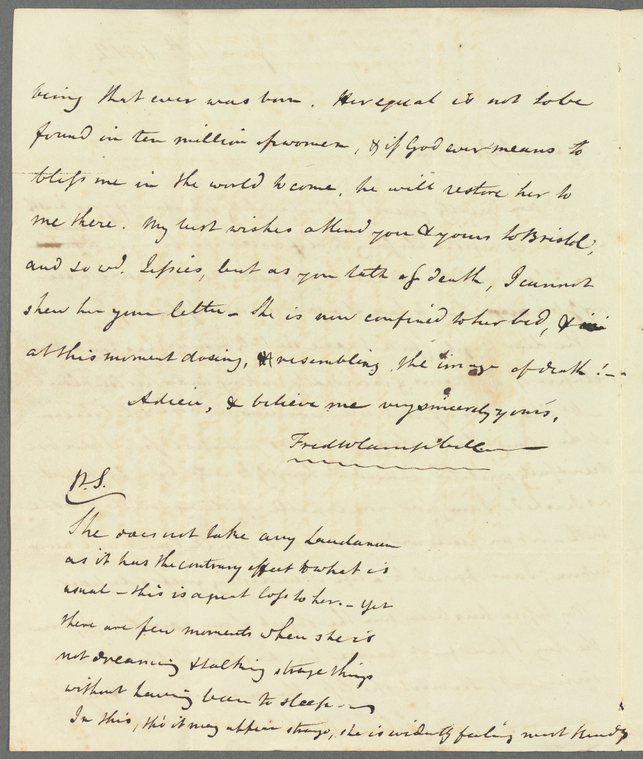 being that ever was born. Her equal is not to be
found in ten million of women, & if God ever means to
bless me in the world to come, he will restore her to
me there. My best wishes attend you & yours to Bristol,
and so wd. Jessies, but as you talk of death, I cannot
shew her your letter – She is now confined to her bed, & is
at this moment dosing, & resembling the image of death! –
Adieu, & believe me very sincerely yours,
Fredk Wm Campbell
P.S.
She does not take any Laudanum
as it has the contrary effect to what is
usual – this is a great loss to her. – Yet
there are few moments when she is
not dreaming & talking strange things
without having been to sleep –
In this, tho' it may appear strange, she is evidently feeling most